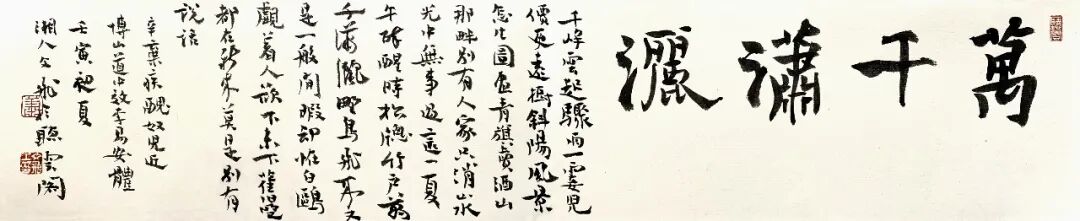 萬千瀟灑
千峰雲起驟雨一霎兒
價更遠樹斜陽風景
怎生圖畫青旗賣酒山
那畔別有人家只消山水
光中無事過這一夏
午醉醒時松窗竹戶萬
千瀟灑野鳥飛來又
是一般閒暇却怪白鷗
覷着人欲下未下舊盟
都在新來莫是別有
說話
辛棄疾醜奴兒近
博山道中效李易安體
壬寅初夏
湘人飛於聽雲閣